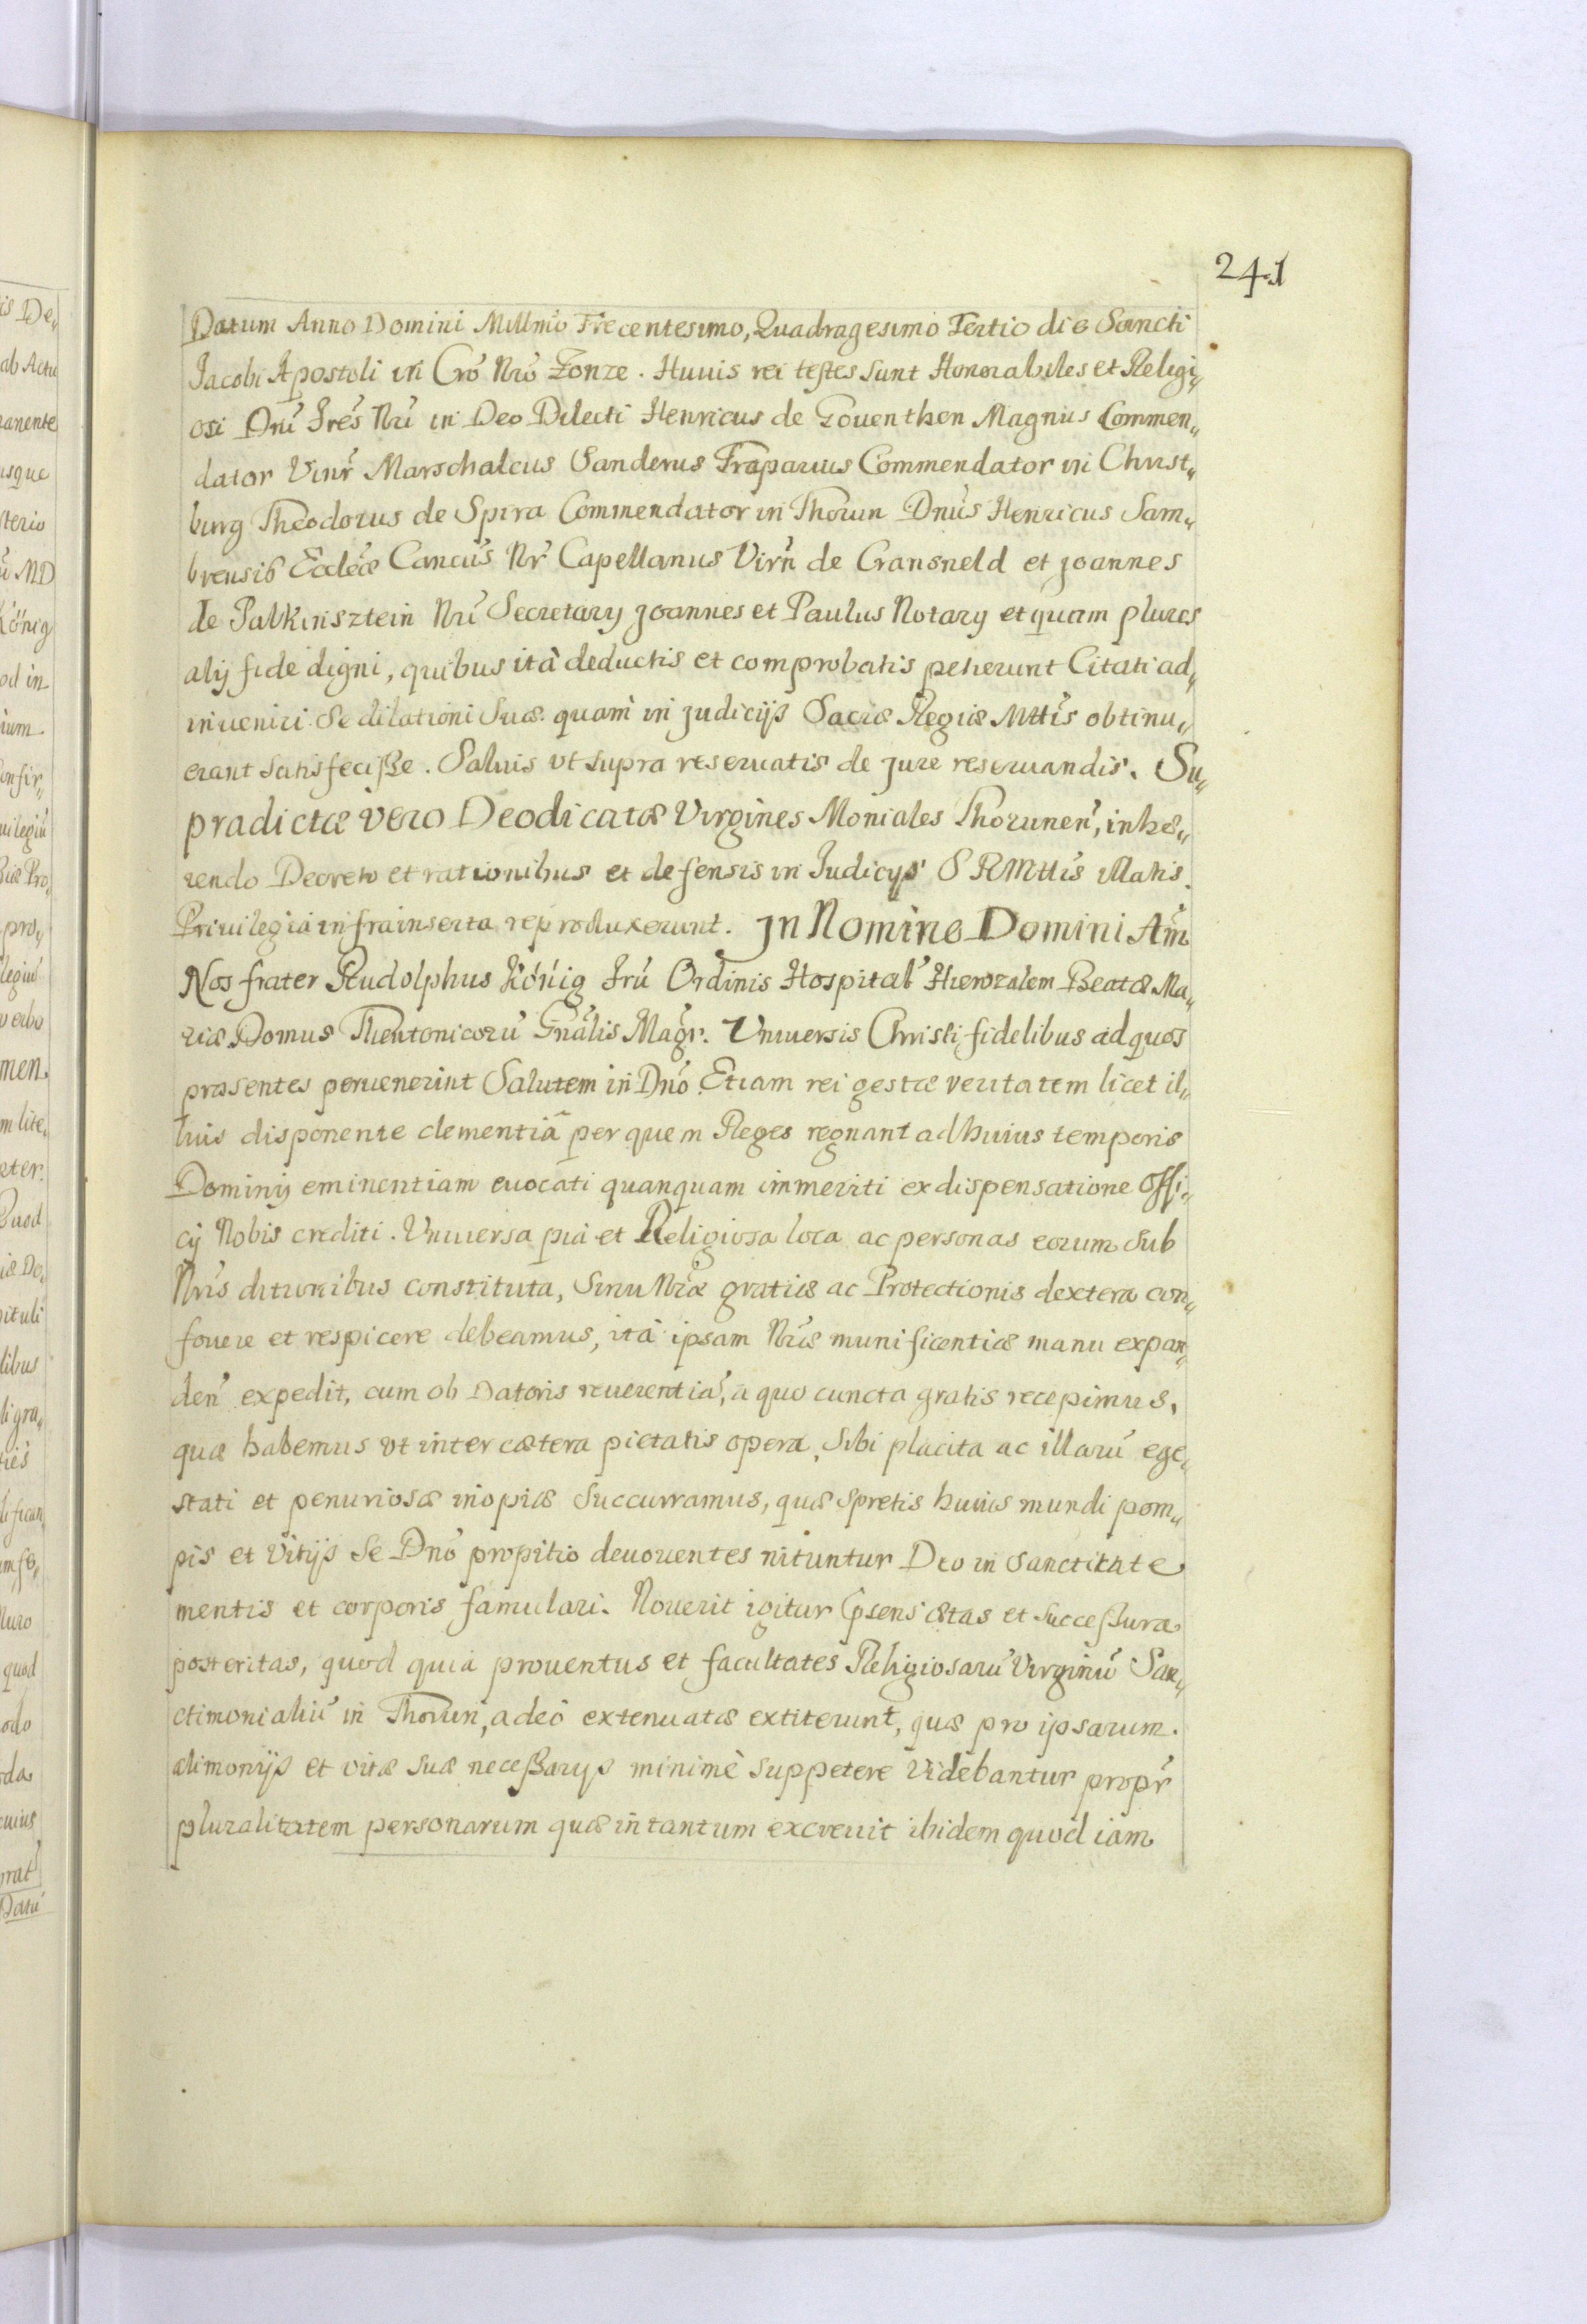 241
Datum Anno Domini Millmo Trecentesimo, Quadragesimo Tertio die Sancti
Jacobi Apostoli in Cro Nro Zonze. Huuis rei testes sunt Honorabiles et Religi„
osi Dni Fres Nri in Deo Dilecti Henricus de Gouenthen Magnus Commen„
dator Vinr Marschalcus Sanderus Traparius Commendator in Christ„
burg Theodorus de Spira Commendator in Thorun Dnus Henricus Sam„
brensis Eccleæ Cancus Nr Capellanus Virn de Cransneld et Joannes
de Falkinsztein Nri Secretary Joannes et Paulus Notary et quam plures
alij fide digni, quibus ità deductis et comprobatis petierunt Citati ad„
inueniri se dilationi suæ quam in judicijs Sacræ Regiæ Mttis obtinu„
erant satisfecisse. Saluis vt supra reseruatis de jure reseruandis. Su„
pradictæ vero Deodicatæ Virgines Moniales Thorunen, inhæ„
rendo Decreto et rationibus et defensis in Judicys S R Mttis illatis.
Priuilegia infrainserta reproduxerunt. In Nomine Domini Am
Nos frater Rudolphus König Fru Ordinis Hospital Hierozalem Beatæ Ma„
riæ Domus Theutonicoru Gnalis Magr. Vniuersis Christi fidelibus ad quos
præsentes peruenerint Salutem in Dno. Etiam rei gestæ veritatem licet il„
lius disponente clementiâ per quem Reges regnant ad huius temporis
Dominij eminentiam euocati quanquam immeriti ex dispensatione Offi„
cij Nobis crediti. Vniuersa pia et Religiosa loca ac personas eorum sub
Nris ditionibus constituta, Sinu Nræ gratiæ ac Protectionis dextera con„
fouere et respicere debeamus, ità ipsam Nræ munificentiæ manu expan„
den expedit, cum ob Datoris reuerentia, à quo cuncta gratis recepimus,
quæ habemus vt inter cætera pietatis opera, Sibi placita ac illaru ege„
stati et penuriosæ inopiæ succurramus, quæ spretis huius mundi pom„
pis et vitijs se Dno propitio deuouentes nituntur Deo in sanctitate
mentis et corporis famulari. Nouerit igitur psens ætas et successura
posteritas, quod quia prouentus et facultates Religiosaru Virginu San„
ctimonialiu in Thorun, adeò extenuatæ extiterunt, quæ pro ipsarum
alimonijs et vitæ suæ necessarys minimè suppetere videbantur propr
pluralitatem personarum quæ in tantum excreuit ibidem quod iam